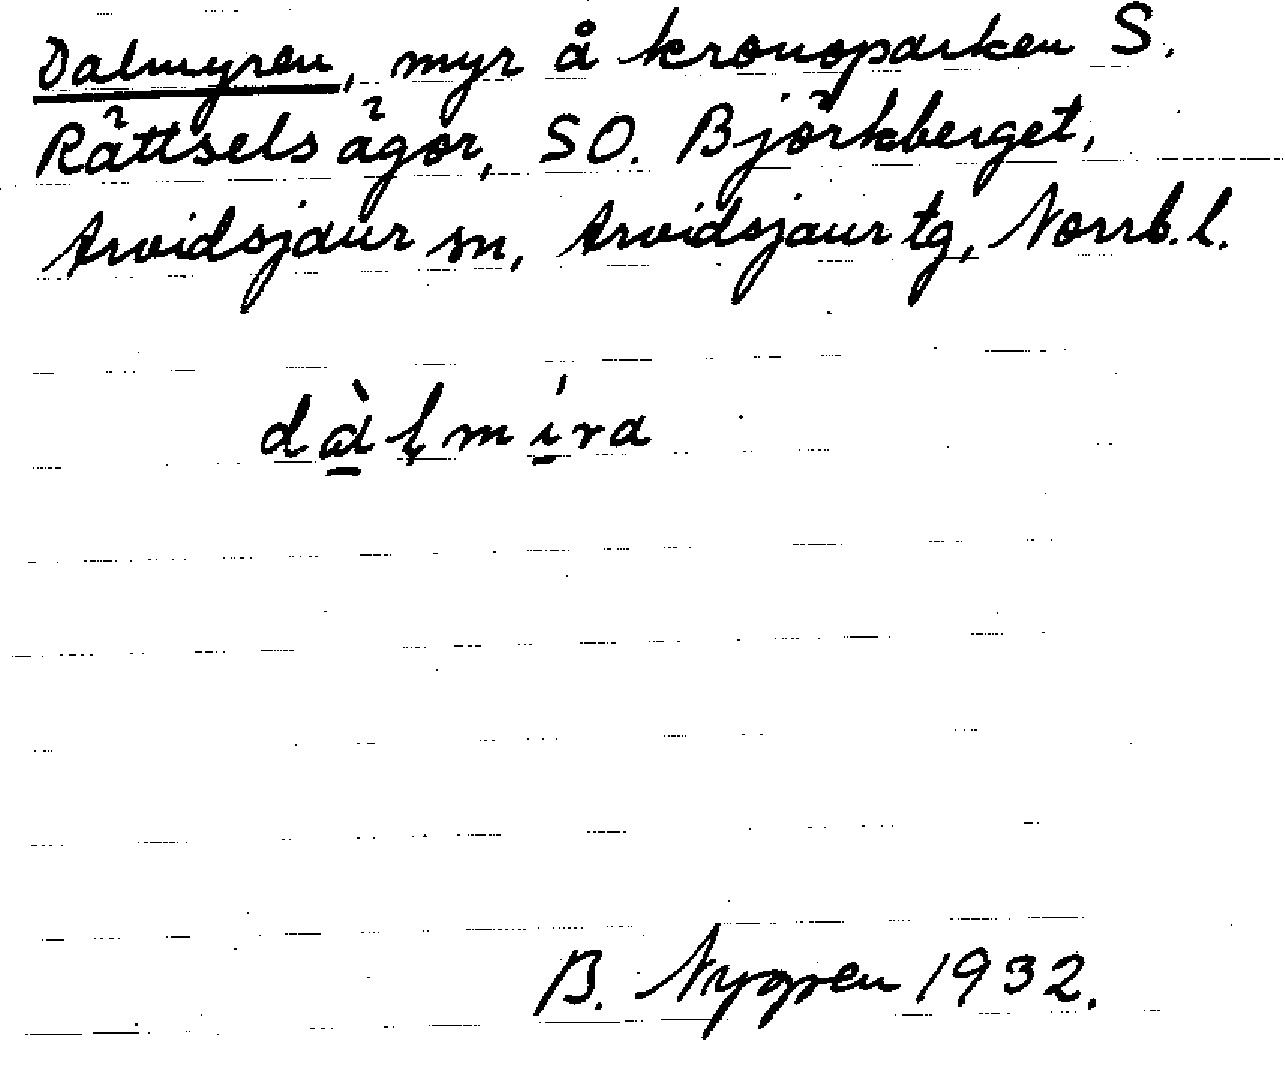 Dalmyren, myr å kronoparken S.
Rättsels ägor, SO. Björkberget,
Arvidsjaur sn, Arvidsjaur tg, Norrb. l.
dàl̥míra
B. Nygren 1932.